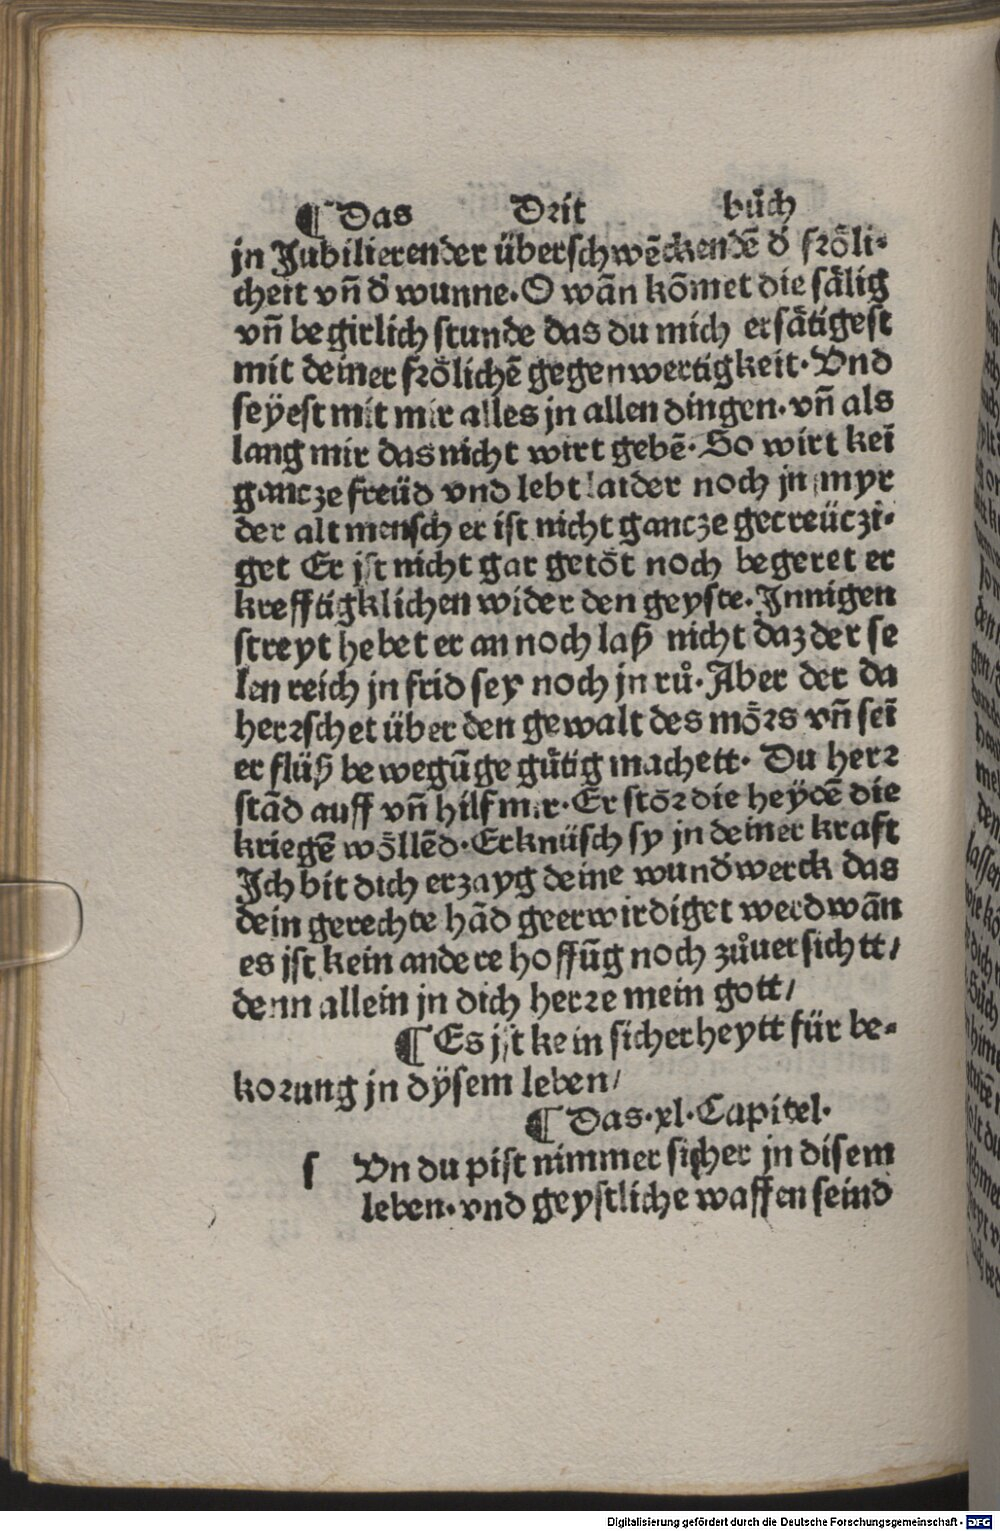 ¶ Das Drit bůch
jn Jubilierender überschwẽckendẽ d̕ frőli⸗
cheit vñ d̕ wunne. O wãn kõmet die sålig
vñ begirlich stunde das du mich ersåtigest
mit deiner frőlichẽ gegenwertigkeit. Vnd
seÿest mit mir alles jn allen dingen. vñ als
lang mir das nicht wirt gebẽ. So wirt keĩ
gancze freüd vnd lebt laider noch jn myr
der alt mensch er ist nicht gancze gecreüczi⸗
get Er jst nicht gar getőt noch begeret er
krefftigklichen wider den geyste. Innigen
streyt hebet er an noch laß nicht daz der se
len reich jn frid sey noch jn rů. Aber der da
herrschet über den gewalt des mőrs vñ seĩ
er flüß bewegũge gůtig machett. Du herr
stãd auff vñ hilf mir. Er stőr die heÿdẽ die
kriegẽ wőllẽd. Erknüsch sy jn deiner kraft
Ich bit dich erzayg deine wund̕werck das
dein gerechte hãd geerwirdiget werd wãn
es jst kein andere hoffũg noch zůuersichtt/
denn allein jn dich herre mein gott/
¶ Es jst kein sicherheytt für be⸗
korung jn dÿsem leben/
¶ Das. xl. Capitel.
s Vn du pist nimmer sicher jn disem
leben. vnd geystliche waffen seind
Digitalisierung gefördert durch die Deutsche Forschungsgemeinschaft - DFG